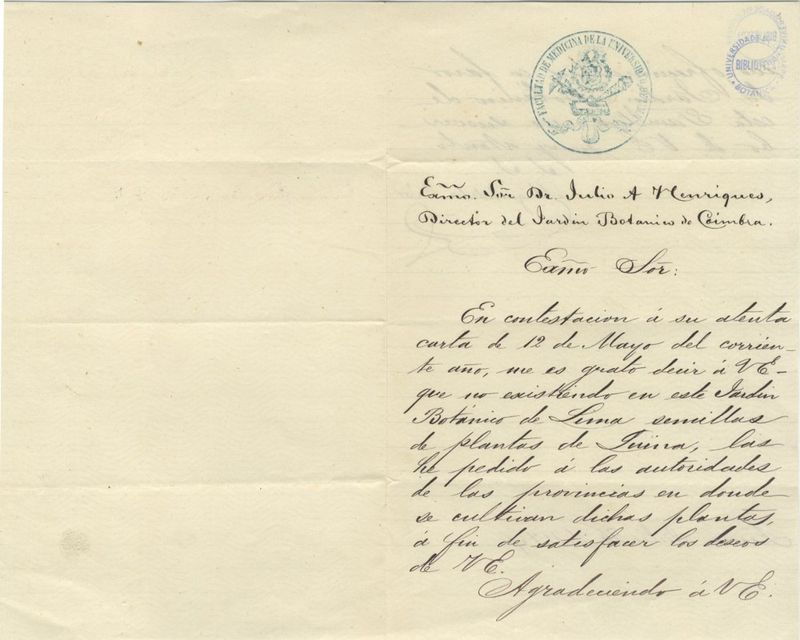 FACULTAD DE MEDICINA DE LA UNIVERSIDAD
BIBLIOTECA
Exm̃o. Sõr Dr. Julio A Henriques,
Director del Jardin Botanico de Coimbra.
Exm̃o Sõr:
En contestacion á su atenta
carta de 12 de Mayo del corrien-
te año, me es grato decir á VE-
que no existiendo en este Jardin
Botánico de Lima semillas
de plantas de Quina, las
he pedido á las autoridades
de las provincias en donde
se cultivan dichas plantas,
á fin de satisfacer los deseos
de VE.
Agradeciendo á VE.